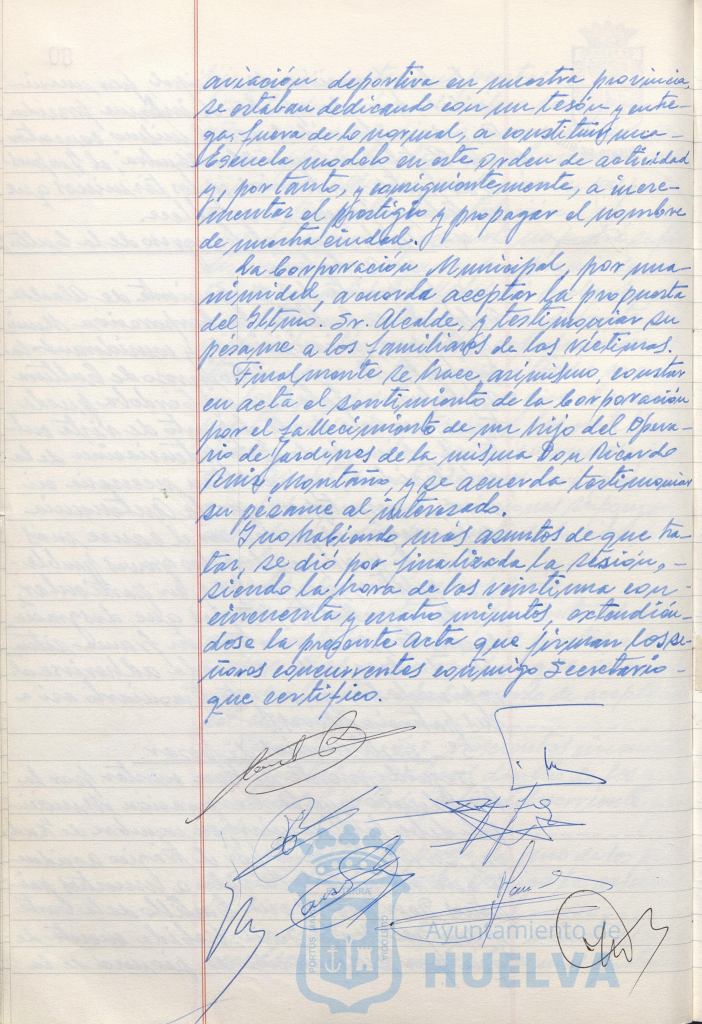 aviación deportiva en nuestra provincia,
se estaban dedicando con un tesón y entre-
ga, fuera de lo normal, a constituir una -
Escuela modelo en este orden de actividad
y, por tanto, y consiguientemente, a incre-
mentar el prestigio y propagar el nombre
de nuestra ciudad.
La Corporación Municipal, por una-
nimidad, acuerda aceptar la propuesta
del Iltmo. Sr. Alcalde, y testimoniar su
pésame a los familiares de las víctimas.
Finalmente se hace, asimismo, constar
en acta el sentimiento de la Corporación
por el fallecimiento de un hijo del Opera-
rio de Jardines de la misma Don Ricardo
Ruiz Montaño, y se acuerda testimoniar
su pésame al interesado.
Y no habiendo más asuntos de que tra-
tar, se dió por finalizada la sesión, -
siendo la hora de las veintiuna con
cincuenta y cuatro minutos, extendién-
dose la presente Acta que firman los se-
ñores concurrentes conmigo Secretario -
que certifico.
PORTUS MARIS
ET TERRA
CUSTODIA
Ayuntamiento de
HUELVA